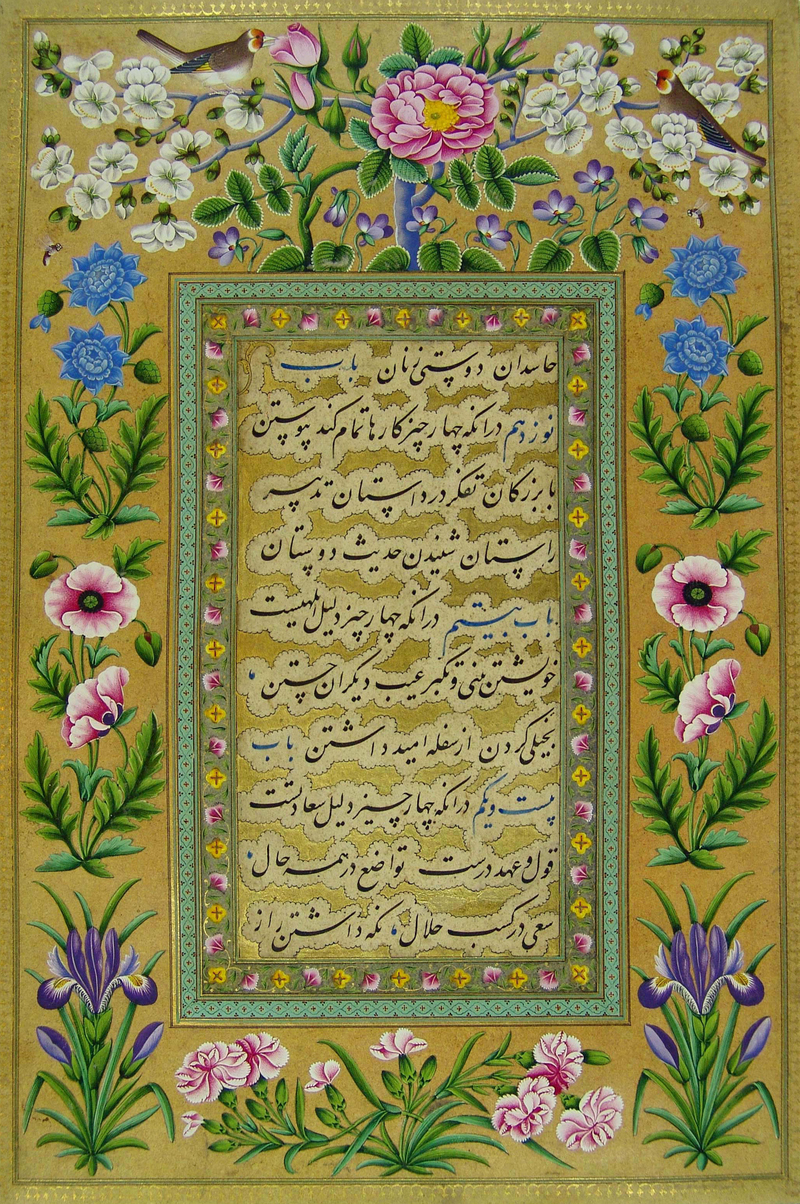 حاسدان دوستی زنان باب
نوزدهم در انکه چهار چیز کارها تمام کند پیوستن
با بزرکان تفکر در داستان تدبیر
راستان شنیدن حدیث دوستان
باب بیستم در انکه چهار چیز دلیل بلهیست
خویشتن بینی و تکبر عیب دیکران جستن
بخیلی کردن از سفله امید داشتن باب
بیست و یکم در انکه چهار چیز دلیل سعادتست
قول و عهد درست تواضع در همه حال
سعی در کسب حلال نکه داشتن راز